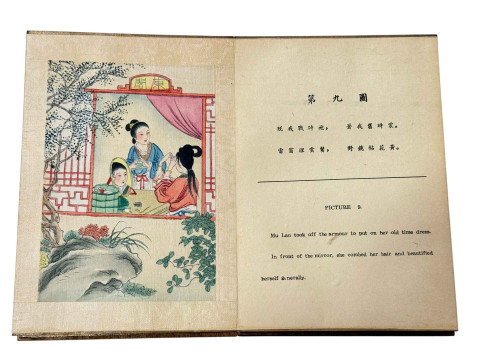 第九圖
脫我戰時袍， 著我舊時裳。
當窗理雲鬢， 對鏡帖花黃。
PICTURE 9.
Mu Lan took off the armour to put on her old time dress.
In front of the mirror, she combed her hair and beautified
herself generally.